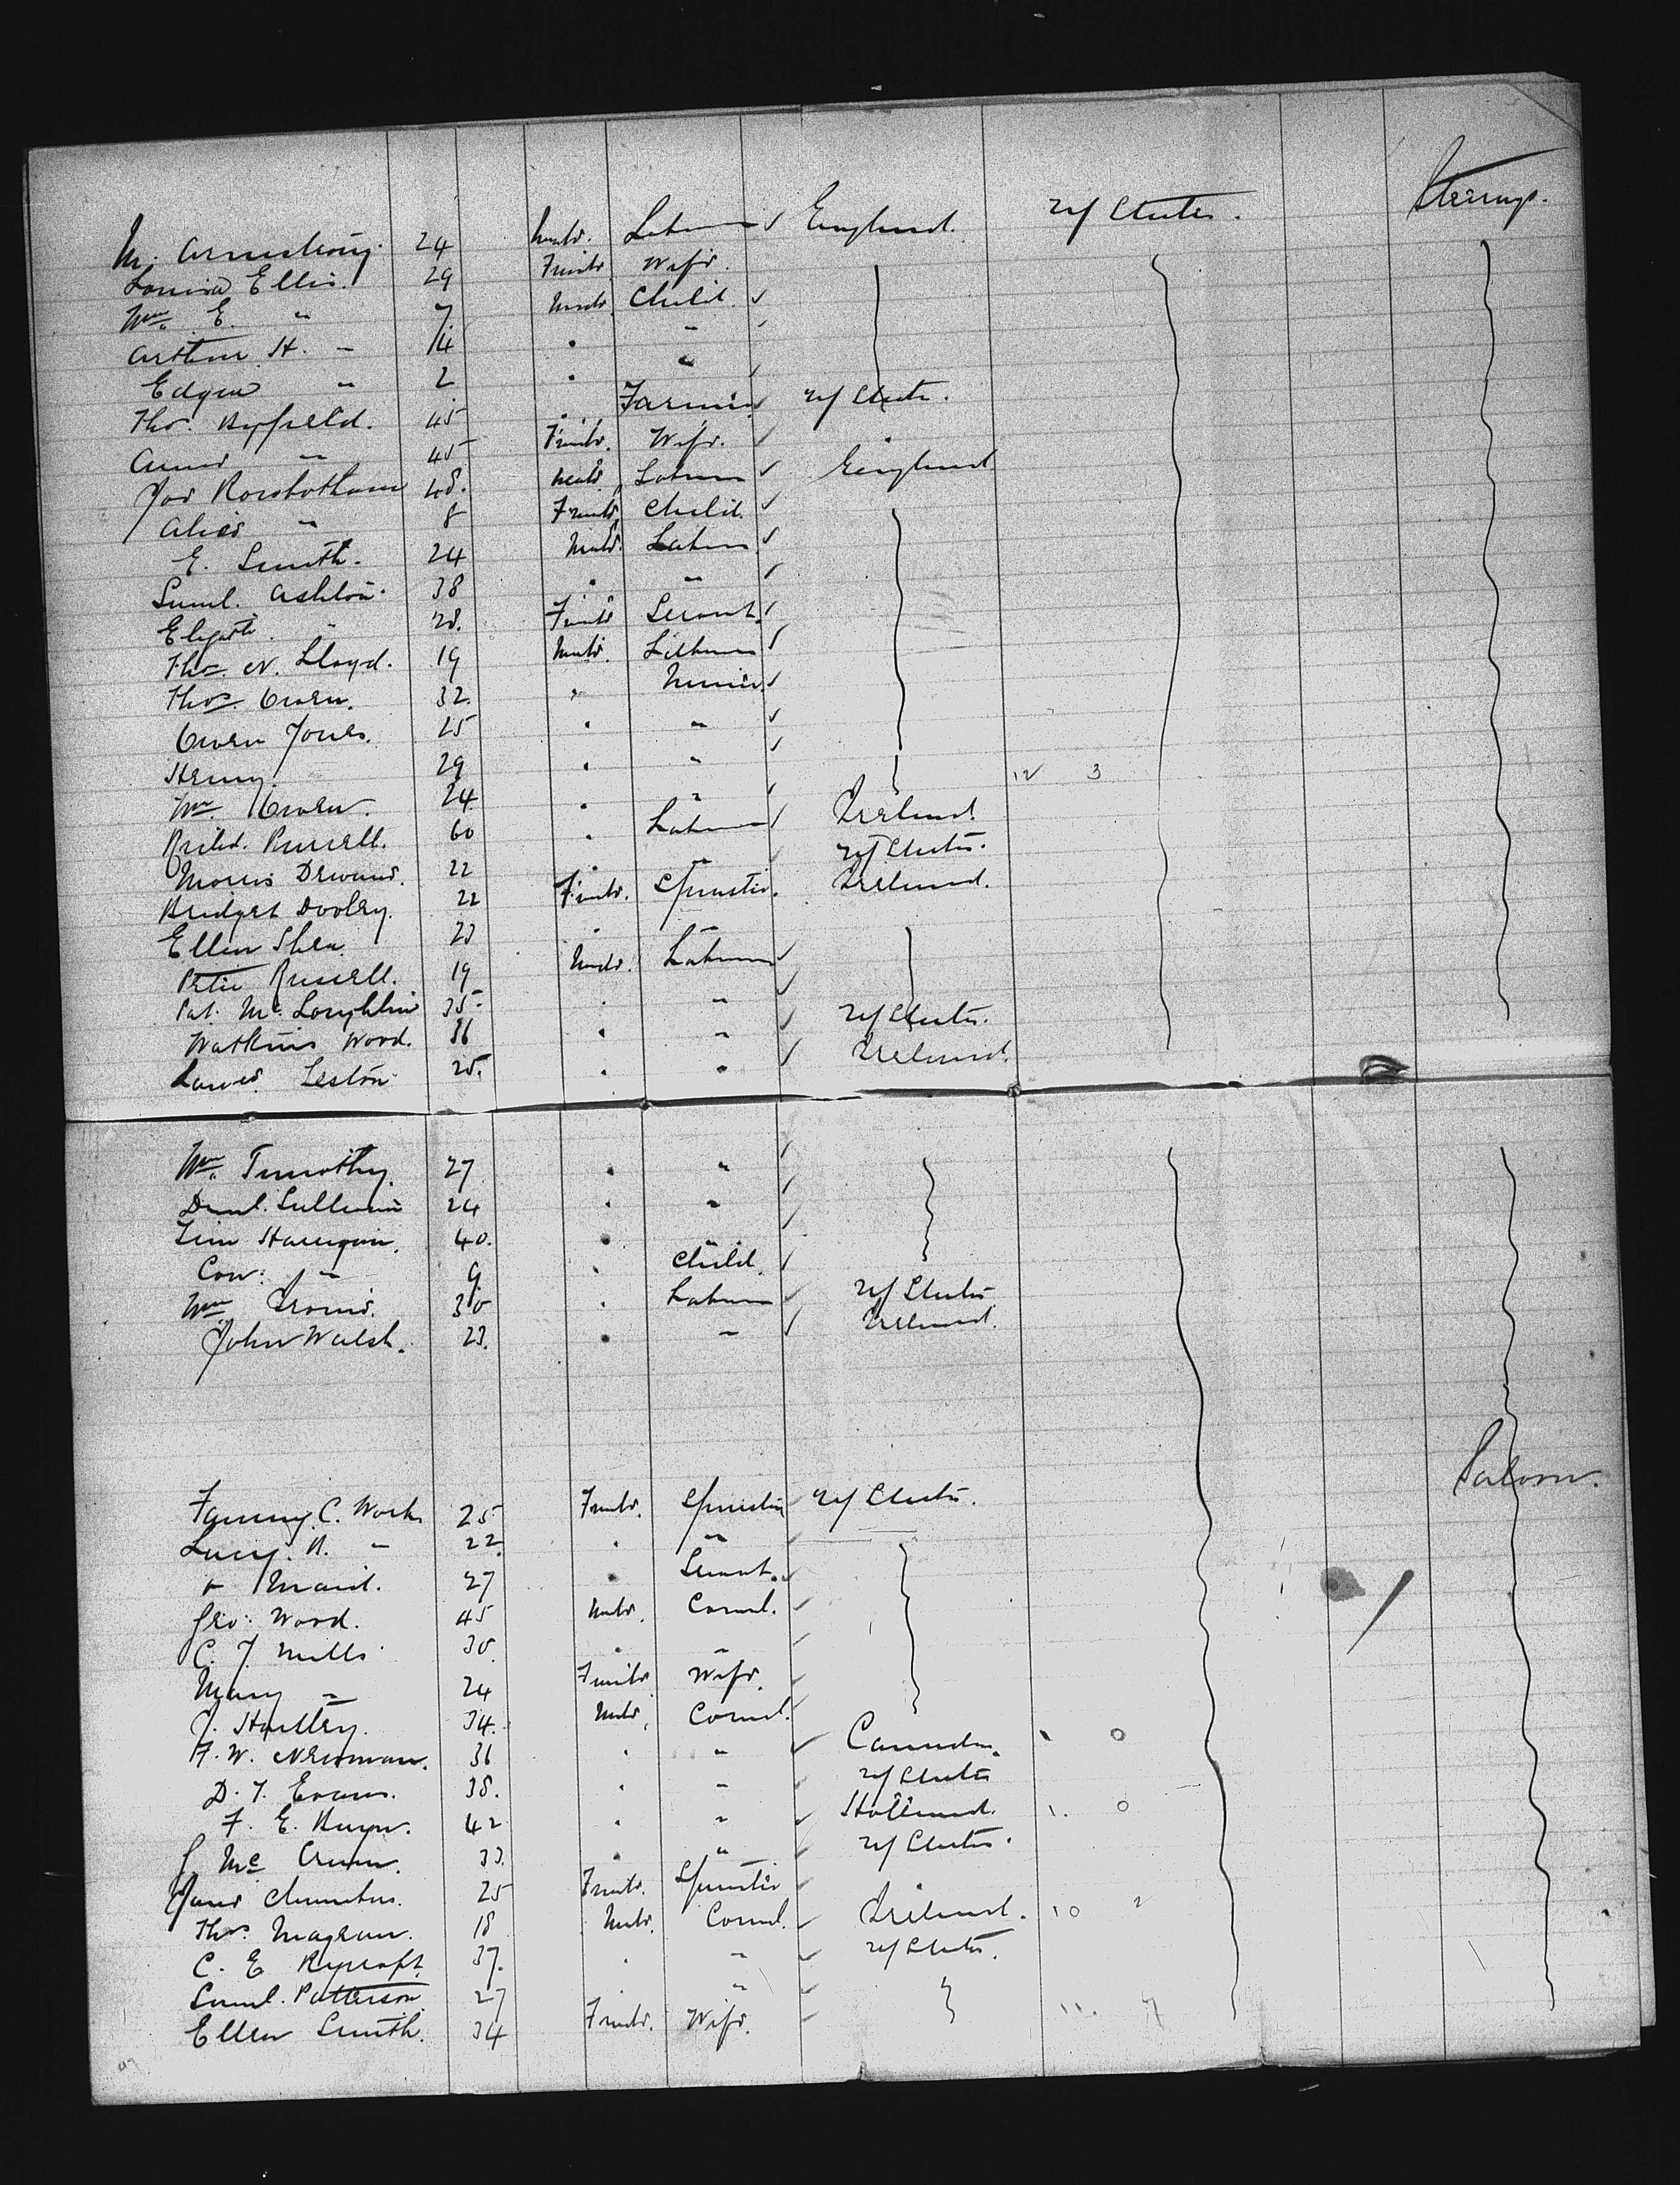 M. Armstrong. 24 Male. Labourer England. U/States. Steerage.
Louisa Ellis. 29 Female Wife.
Wm. E. " 7 Male Child.
Arthur H. " 4 " "
Edgar " 2 " "
Thos. Byfield. 45 " Farmer U/States.
Anna " 45 Female. Wife.
Jas Rowbotham 48. Male Labourer England
Alice " 8 Female Child.
E. Smith. 24 Male. Labourer
Saml. Ashton. 38 " "
Elizath. " 28. Female Servant.
Thos. N. Lloyd. 19 Male. Labourer
Thos. Owen. 32. " Miner.
Owen Jones. 25 " "
Henry " 29 " " 12 3
Wm. Owen. 24 " "
Richd. Russell. 60 " Labourer Ireland.
Morris 22 " " U/States.
Bridget Dooley. 22 Female. Spinster. Ireland.
Ellen Shea. 23 " "
Peter Russell. 19 Male. Labourer
Pat. McLoughlin 35. " "
Watkins Wood. 36 " " U/States.
Leston. 25. " " Ireland.
Wm. Timothy. 27 " "
Danl. Sullivan 24 " "
Tim 40. " "
Con: " 9 " Child.
Wm 30 " Labourer U/States
John Walsh. 23. " " Ireland.
Saloon.
Fanny C. Work 25 Female. Spinster U/States.
Lucy. " 22. " "
& Maid. 27 " Servant.
Geo: Wood. 45 Male. Comml.
C. J. Mills 30. " "
Mary " 24 Female Wife.
J. Hartley. 34. Male. Comml.
F. W. Newman. 36 " " Canada. 1 0
D. J. Evans. 38. " " U/States
F. E. 42 " " Holland. 1. 0
J. Mc 33. " " U/States.
Jane 25 Female. Spinster
Thos. 18 Male. Comml. Ireland. 10 2
C. E. Rycroft. 37. " " U/States.
Saml. Patterson. 27 " "
Ellen Smith. 34 Female. Wife. 11. 7